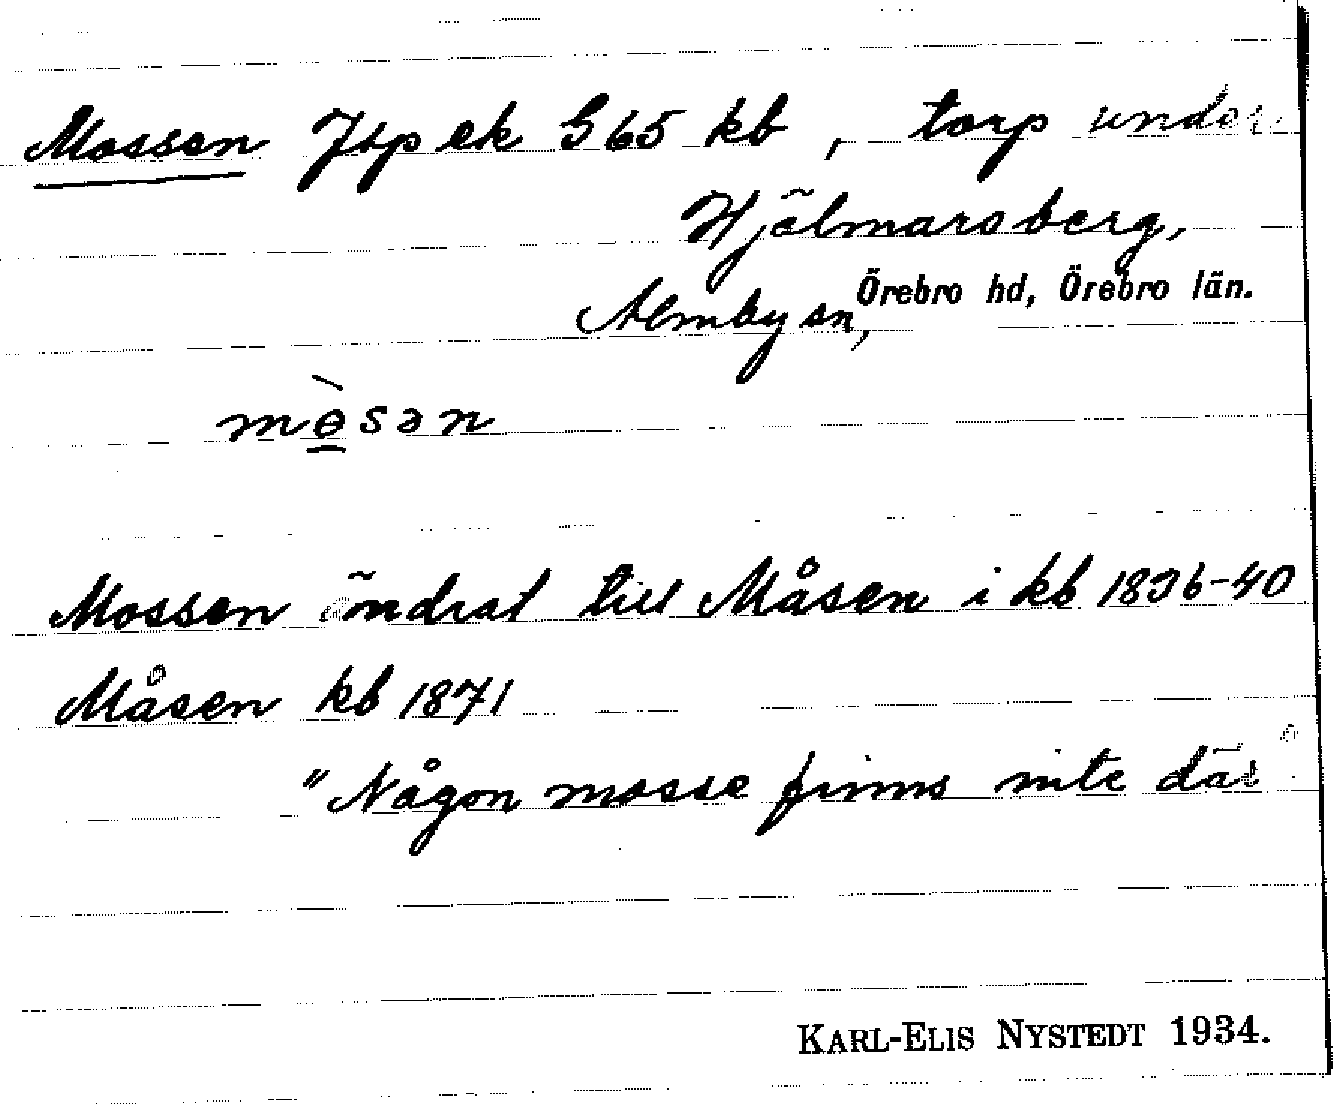 Mossen Jtp ek G65 kb, torp under
Hjälmarsberg,
Almby sn, Örebro hd, Örebro län.
mɵ̀sən
Mossen ändrat till Måsen i kb 1836-40
Måsen kb 1871
"Någon mosse finns inte där"
KARL-ELIS NYSTEDT 1934.